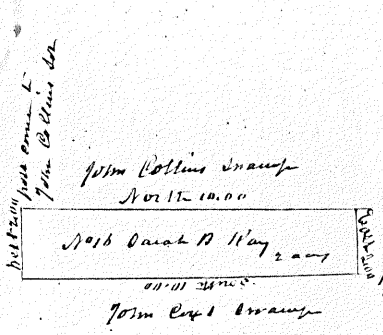 West 2.00 post corner to
John Collins Lot
John Collins Swamp
North 10.00
No 16 Sarah B Kay
2 acres
East 2.00
South 10.00
John Cox's Swamp